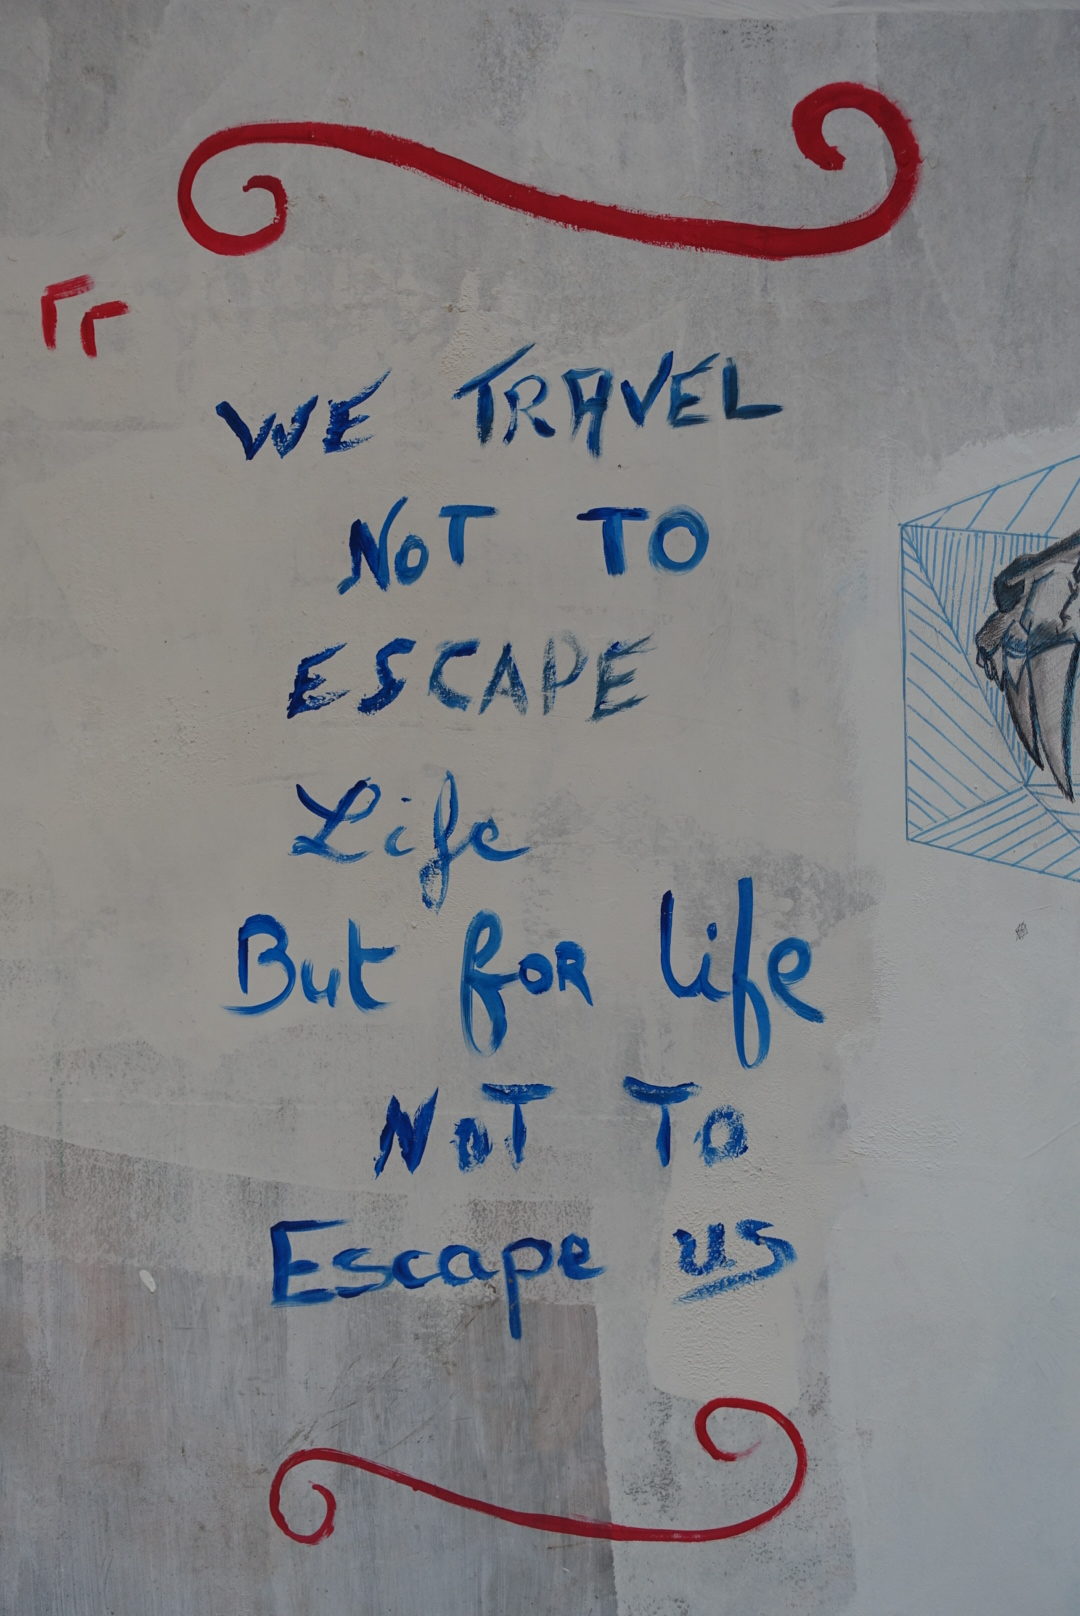 “
WE TRAVEL
NOT TO
ESCAPE
Life
But for life
NOT TO
Escape us